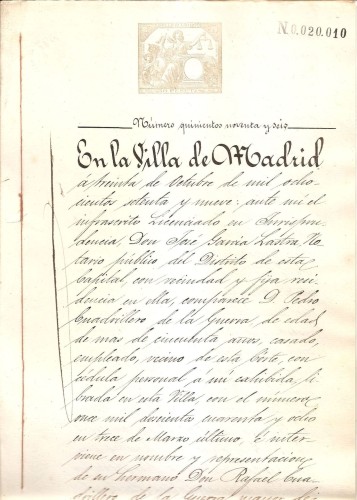 N.0.020.010
Número quinientos noventa y séis
En la Villa de Madrid
á treinta de Octubre de mil ocho
cientos setenta y nueve: ante mi el
infrascrito Licenciado en Jurispru
dencia, Don José Garcia Lastra No
tario público del Distrito de esta
Capital, con vecindad y fija resi
dencia en ella, comparece D. Pedro
Cuadrillero de la Guerra, de edad
de mas de cincuenta años, casado,
empleado, vecino de esta Corte, con
cédula personal á mi exhibida, li
brada en esta Villa, con el número
once mil doscientos cuarenta y ocho
en trece de Marzo último, é inter
viene en nombre y representacion
de su hermano Don Rafael Cua
drillero de la Guerra